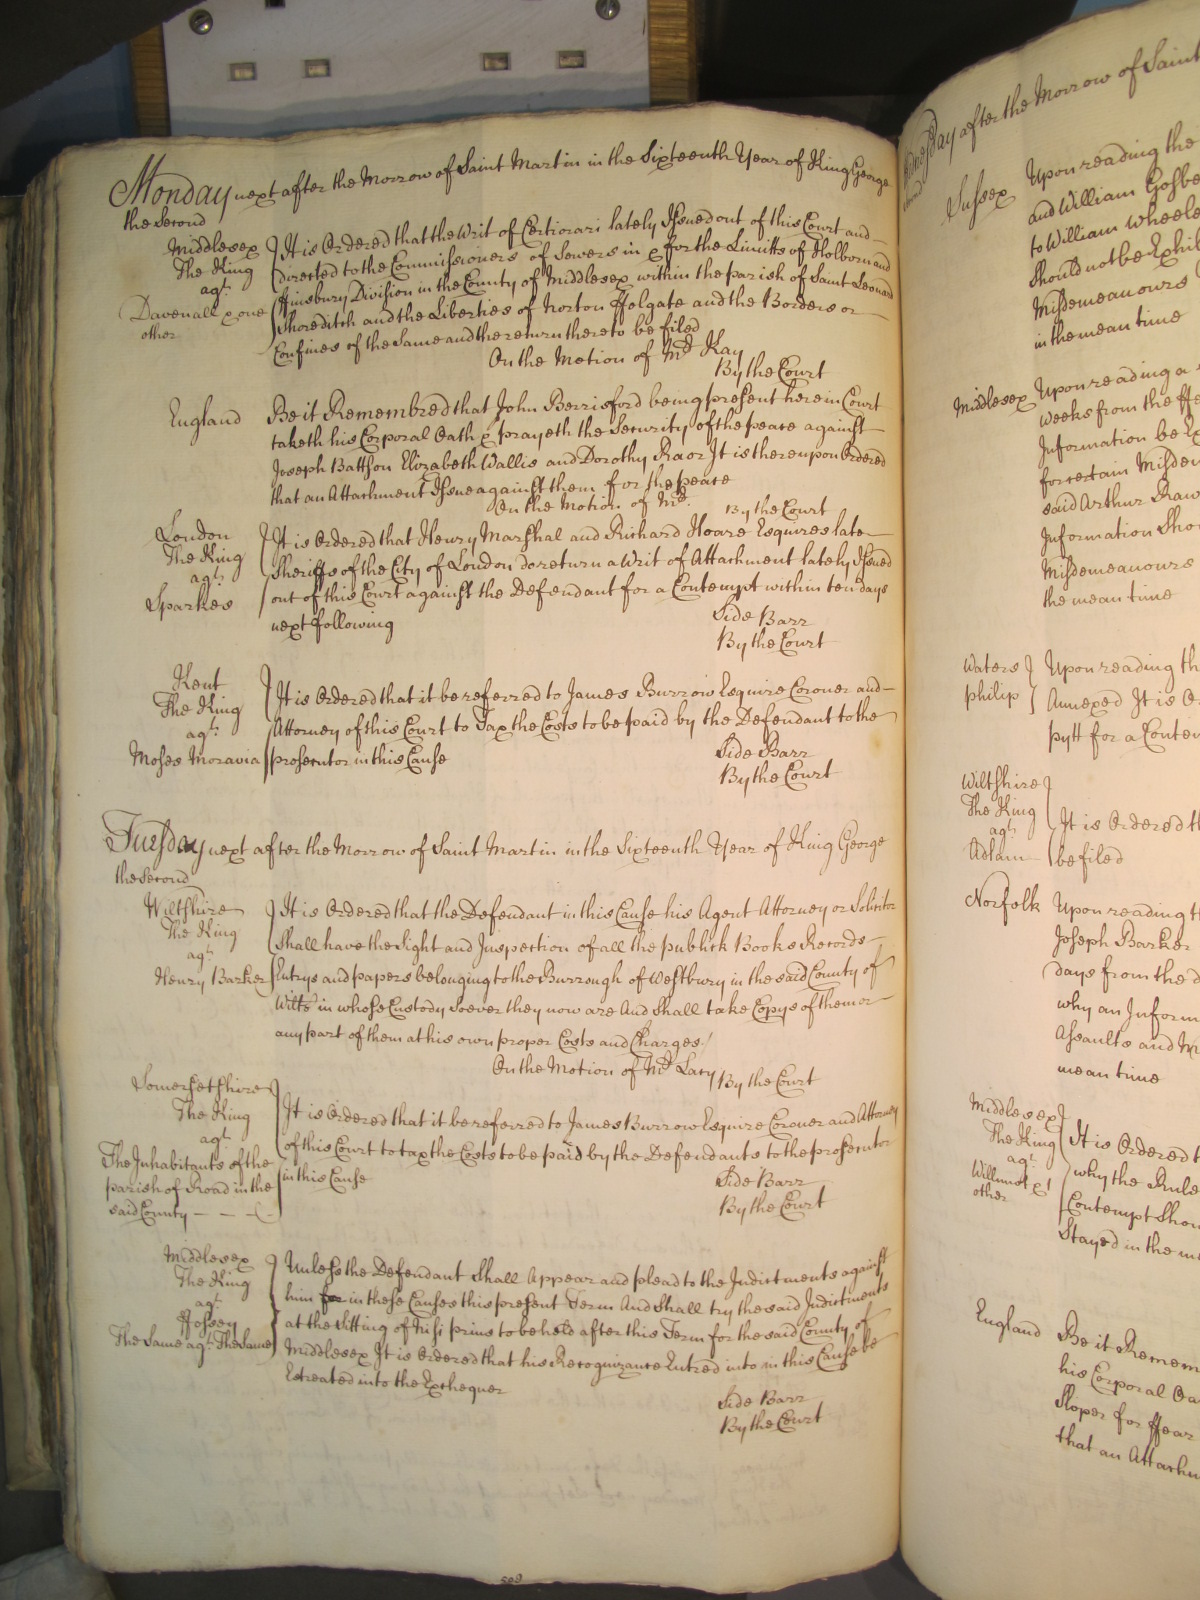 Monday next after the Morrow of Saint Martin in the Sixteenth Year of King George
the Second
Middlesex
The King
agt.
Davenall & one
other
It is Ordered that the Writ of Certiorari lately Issued out of this Court and
directed to the Commissioners of Sewers in & for the Limitts of Holborn and
ffinsbury Division in the County of Middlesex within the parish of Saint Leonard
Shoreditch and the Liberties of Norton ffolgate and the Borders or
Confines of the Same and the return thereto be filed
On the Motion of Mr. Kay
By the Court
England
Be it Remembred that John Berrisford being present here in Court
taketh his Corporal Oath & prayeth the Security of the peace against
Joseph Battson Elizabeth Wallis and Dorothy Raor It is thereupon Ordered
that an Attachment Issue against them for the peace
On the Motion of Mr.
By the Court
London
The King
agt.
Sparkes
It is Ordered that Henry Marshal and Richard Hoare Esquires late
Sheriffs of the City of London do return a Writ of Attachment lately Issued
out of this Court against the Defendant for a Contempt within ten days
next following
Side Barr
By the Court
Kent
The King
agt.
Moses Moravia
It is Ordered that it be referred to James Burrow Esquire Coroner and
Attorney of this Court to Tax the Costs to be paid by the Defendant to the
prosecutor in this Cause
Side Barr
By the Court
Tuesday next after the Morrow of Saint Martin in the Sixteenth Year of King George
the Second
Wiltshire
The King
agt.
Henry Barker
It is Ordered that the Defendant in this Cause his Agent Attorney or Solicitor
Shall have the Sight and Inspection of all the publick Books Records
Entrys and papers belonging to the Burrough of Westbury in the said County of
Wilts in whose Custody soever they now are And Shall take Copys of them or
any part of them at his own proper Costs and Charges
On the Motion of Mr. Lacy
By the Court
Somersetshire
The King
agt.
The Inhabitants of the
parish of Road in the
said County
It is Ordered that it be referred to James Burrow Esquire Coroner and Attorney
of this Court to tax the Costs to be paid by the Defendants to the prosecutor
in this Cause
Side Barr
By the Court
Middlesex
The King
agt.
ffossey
The Same agt. The Same
Unless the Defendant Shall Appear and plead to the Indictments against
him in these Causes this present Term And Shall try the said Indictments
at the Sitting of Nisi prius to be held after this Term for the said County of
Middlesex It is Ordered that his Recognizance Entred into in this Cause be
Estreated into the Exchequer
Side Barr
By the Court
Wednesday after the Morrow of Saint
Sussex
Upon reading the
and William Gosbe
to William wheele
Should not be Exhib
Misdemeanours
in the mean time
Middlesex
Upon reading a
weeks from the ffe
Information be Ex
for certain Misdem
said Arthur Raw
Information Shou
Misdemeanours
the mean time
Waters
philip
Upon reading th
Annexed It is O
pytt for a Contem
Wiltshire
The King
agt.
Adlam
It is Ordered th
be filed
Norfolk
Upon reading th
Joseph Barker
days from the d
why an Inform
Assaults and
mean time
Middlesex
The King
agt.
other
It is Ordered t
why the Rule
Contempt Shou
Stayed in the me
England
Be it Remem
his Corporal Oa
Sloper for ffear
that an Attachm